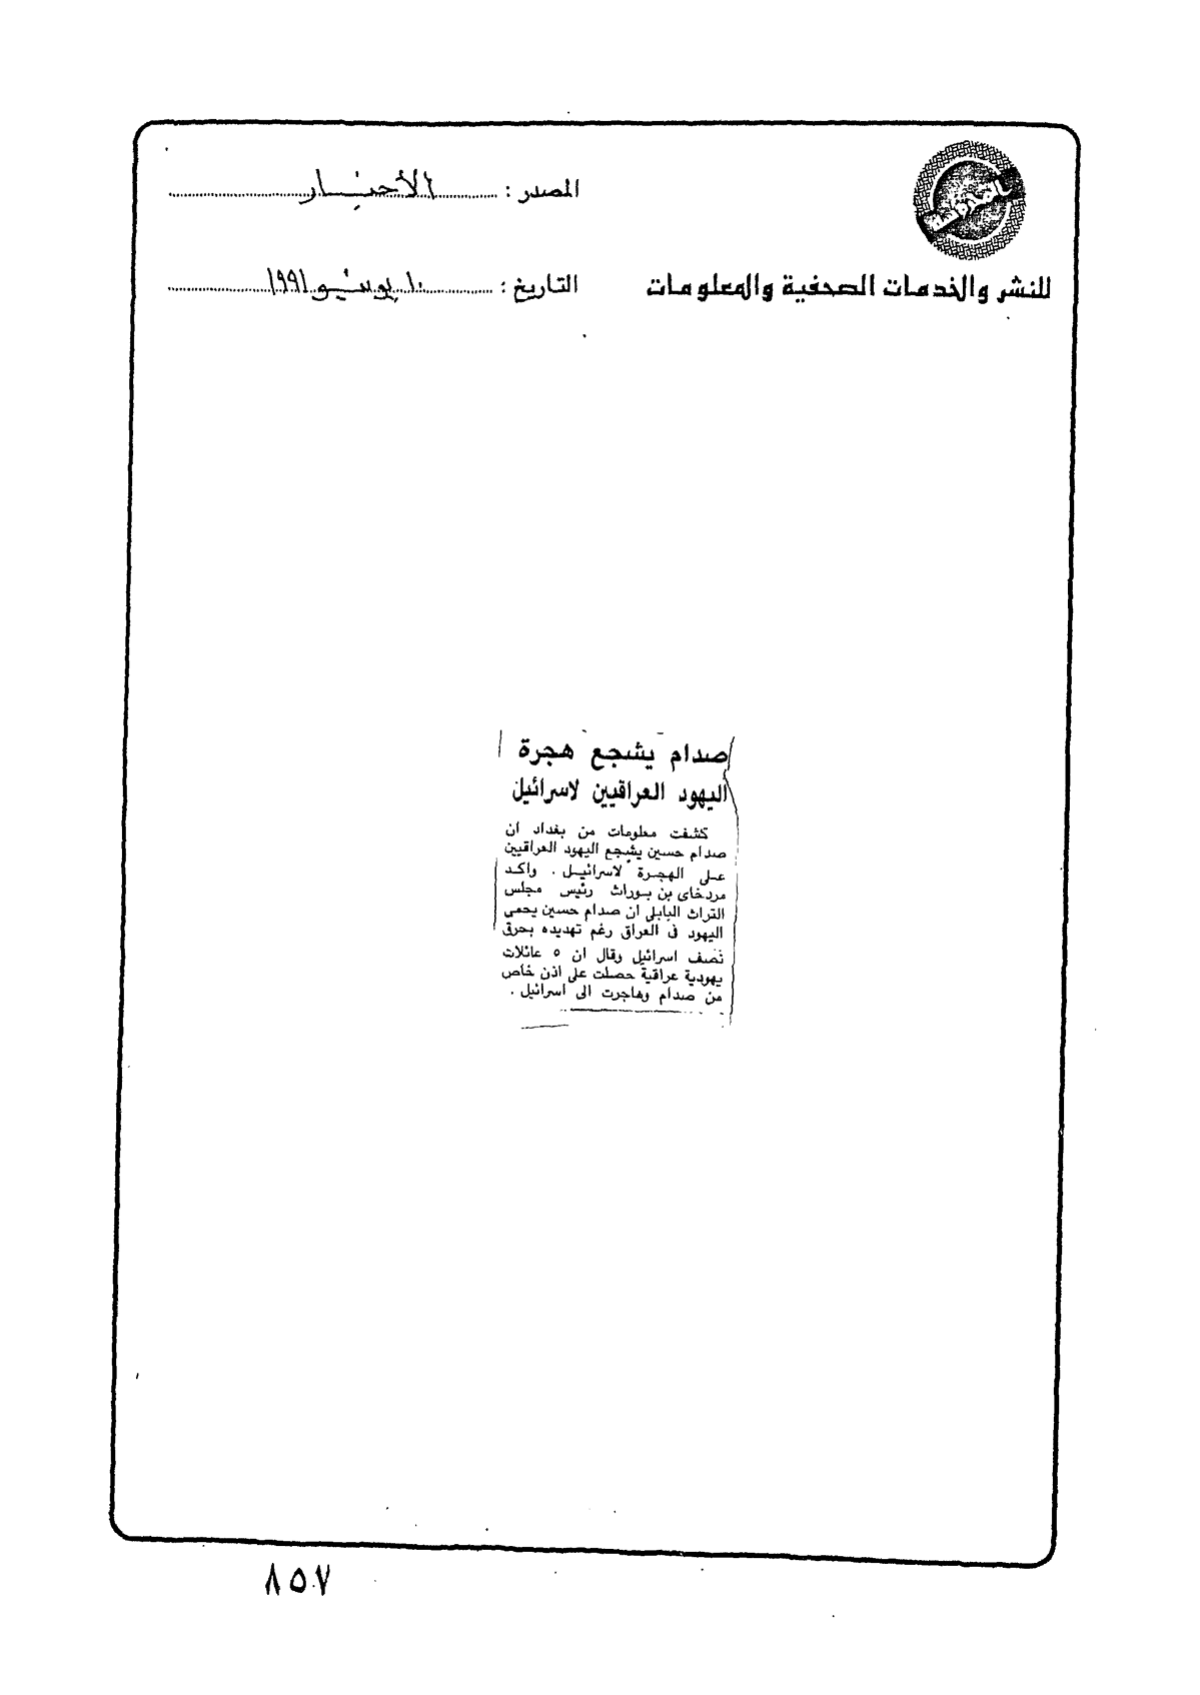 المصدر : الأخبار
للنشر والخدمات الصحفية والمعلومات
التاريخ : ١٠ يونيو ١٩٩١
صدام يشجع هجرة
اليهود العراقيين لاسرائيل
كشفت معلومات من بغداد ان
صدام حسين يشجع اليهود العراقيين
على الهجرة لاسرائيل . واكد
مردخاى بن بورات رئيس مجلس
التراث البابلى ان صدام حسين يحمى
اليهود فى العراق رغم تهديده بحرق
نصف اسرائيل وقال ان ٥ عائلات
يهودية عراقية حصلت على اذن خاص
من صدام وهاجرت الى اسرائيل .
٨٥٧